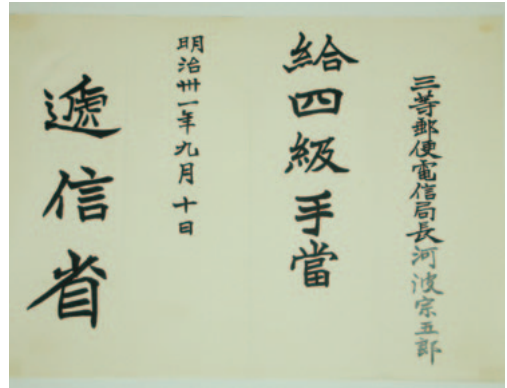 三等郵便電信局長河波宗五郎
給四級手當
明治卅一年九月十日
遞信省